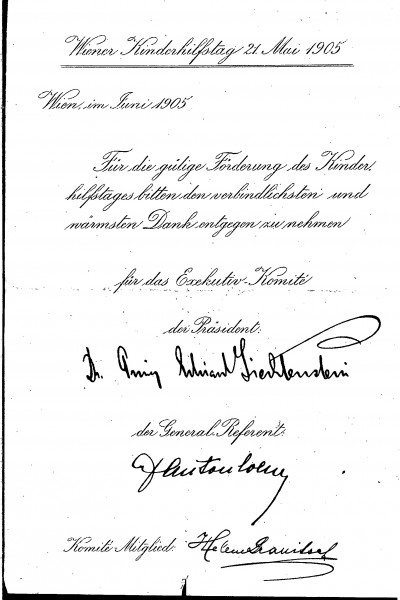 Wiener Kinderhilfstag 21 Mai 1905
Wien, im Juni 1905
Für die gütige Förderung des Kinder,
hilfstages bitten den verbindlichsten und
wärmsten Dank entgegen zu nehmen
für das Exekutiv-Komité
der Präsident:
Dr. Prinz Eduard Liechtenstein
der General-Referent:
Dr Anton Loew
Komité Mitglied: Helene Granitsch